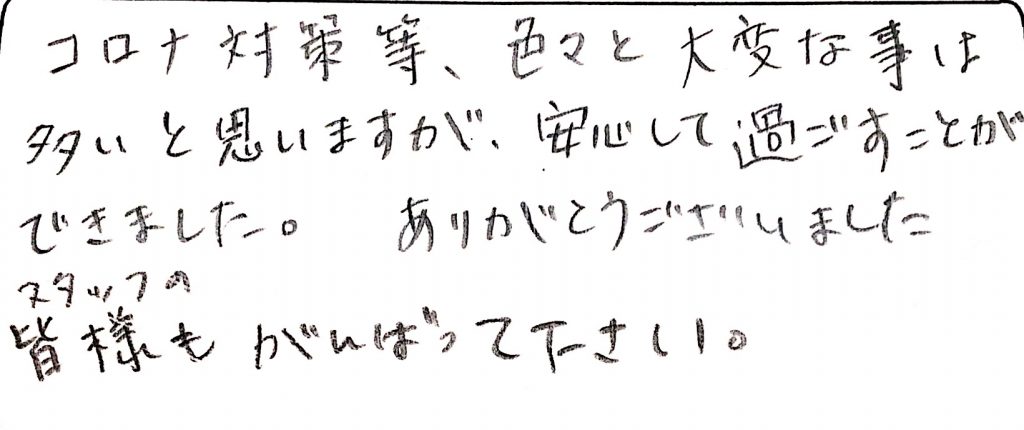 コロナ対策等、色々と大変な事は
多いと思いますが、安心して過ごすことが
できました。 ありがとうございました
スタッフの
皆様もがんばって下さい。